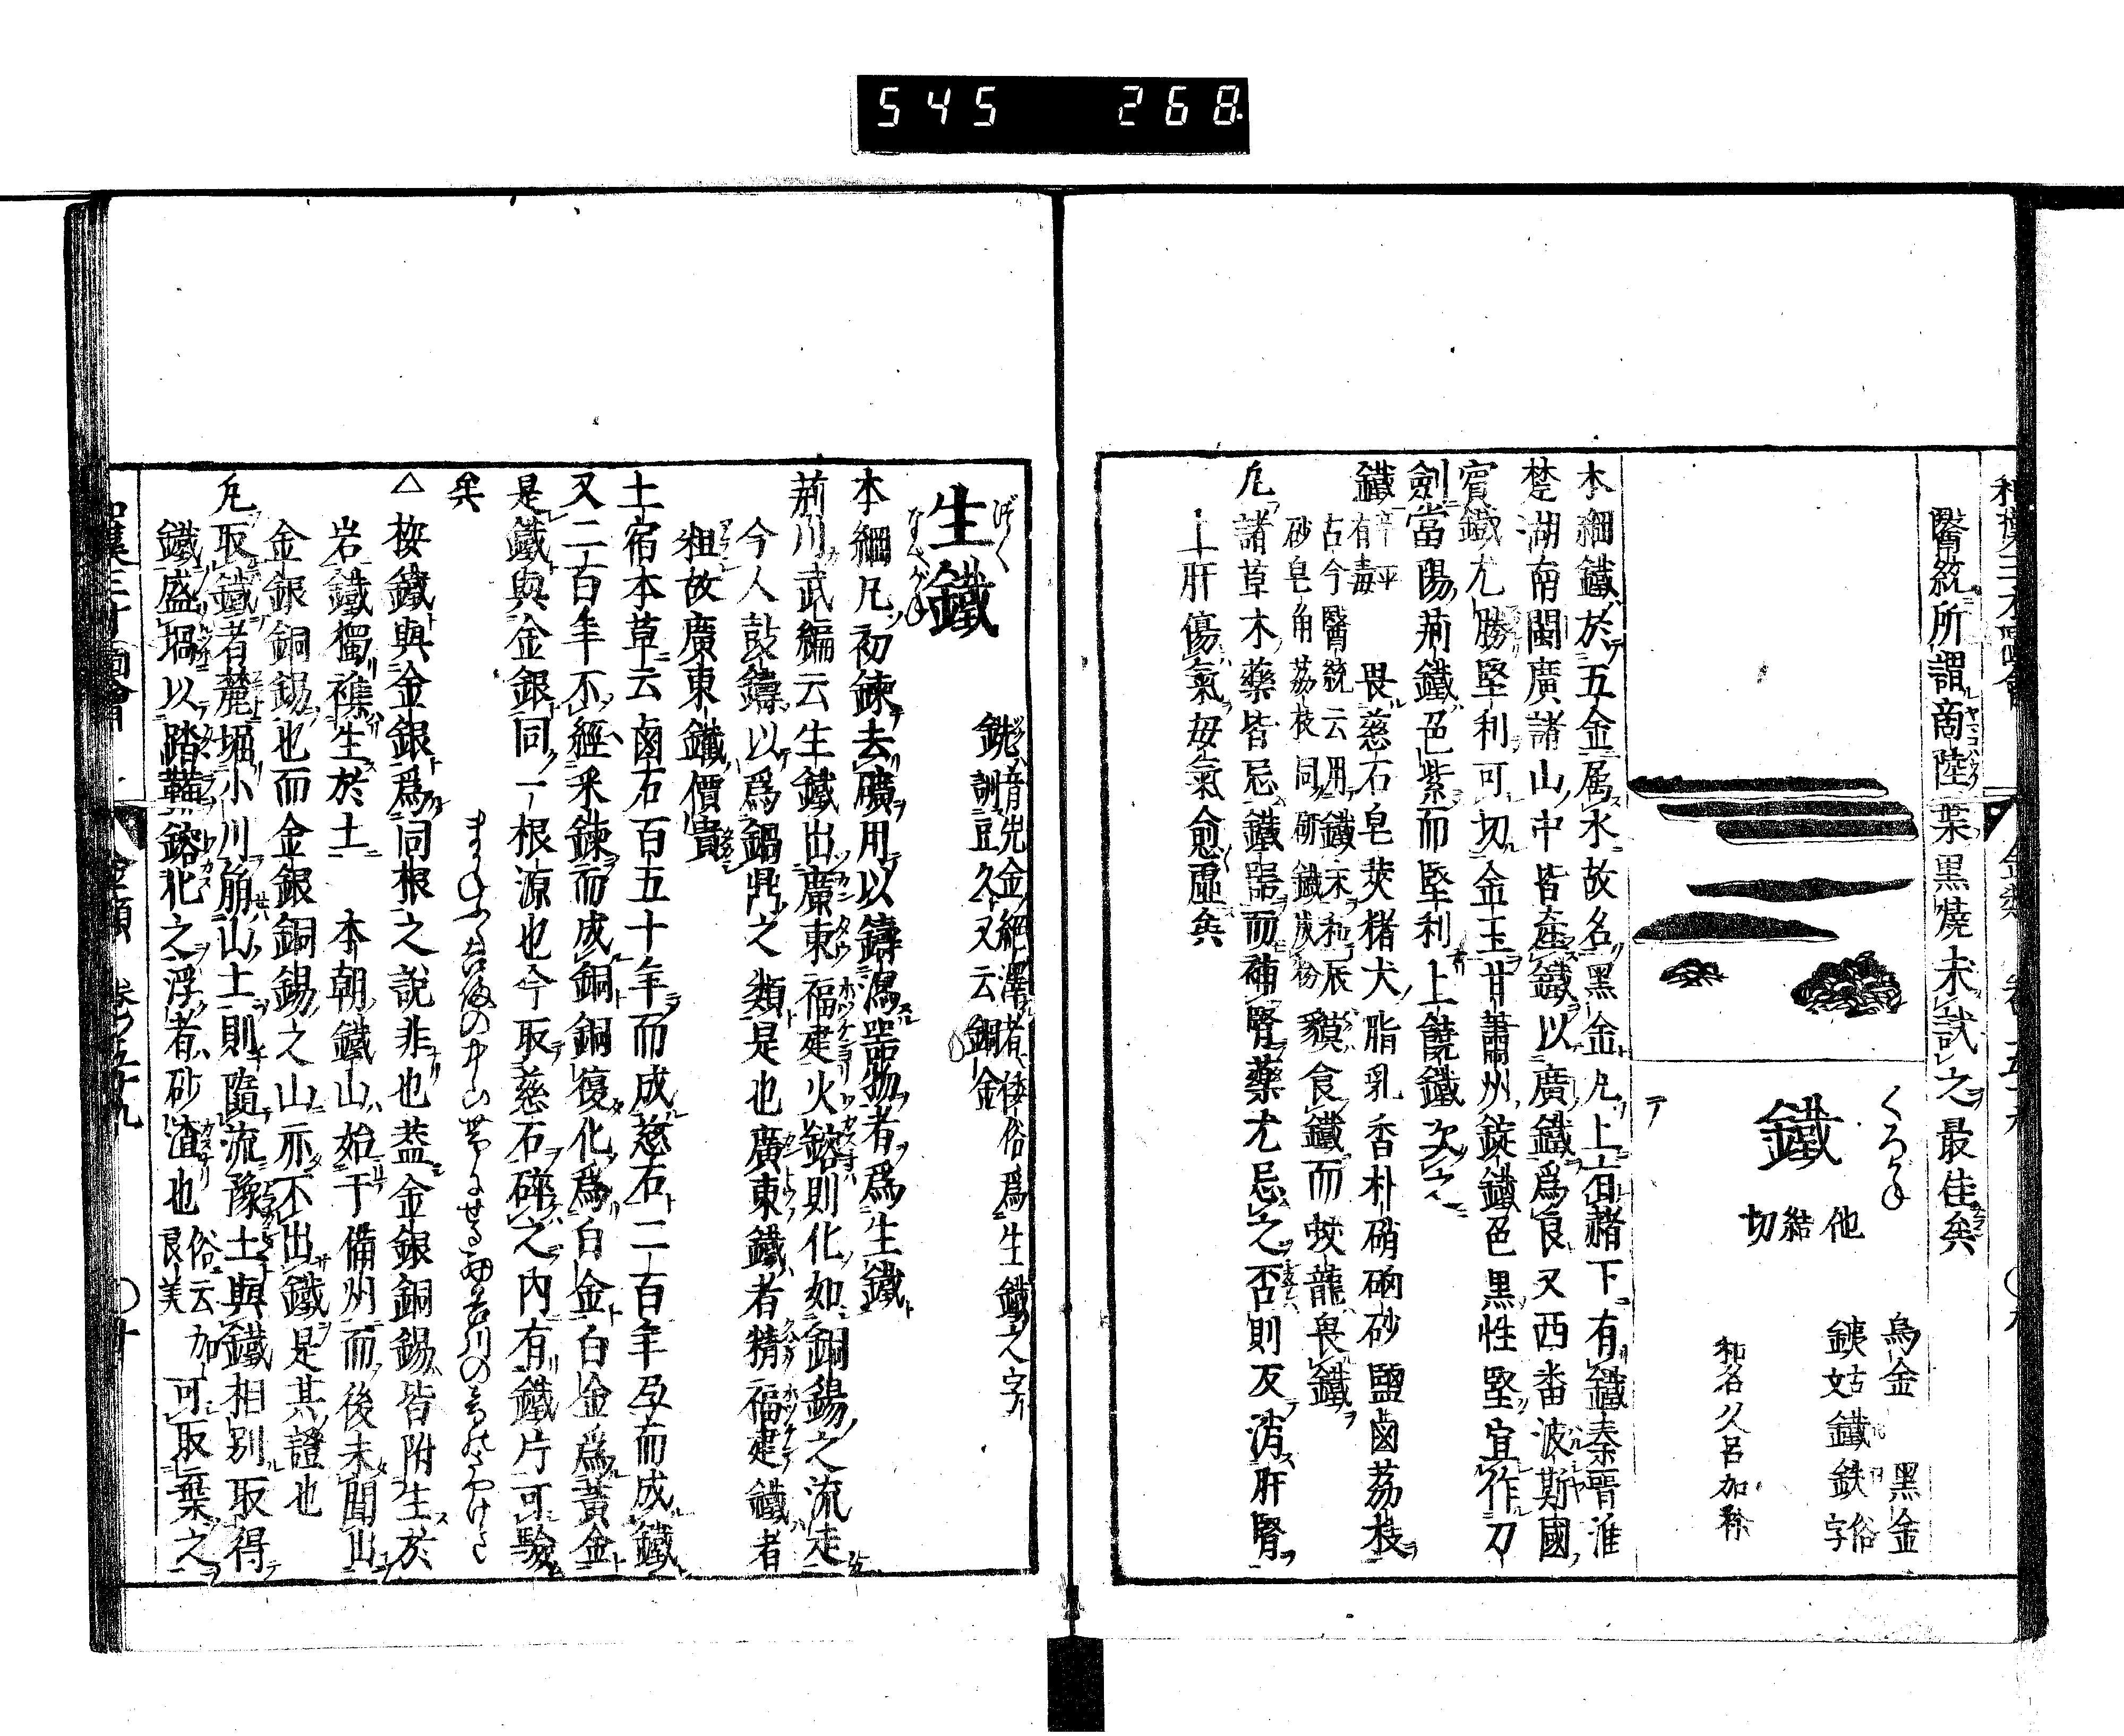 545 268
醫統所謂商陸葉黒燒末試之最佳矣
くろかね
鐵
他結切
烏金 黒金
銕姑鐵鉄俗字
和名久呂加祢
本綱鐵於五金属水故名黒金凡上有赭下有鐵秦晋淮
楚湖南閩廣諸山中皆産鐵以廣鐵為良又西番波斯國
賓鐵尤勝堅利可切金玉甘肅州錠鐵色黒性堅宜作刀
劍當陽荊鐵色紫而堅利上饒鐵次之
鐵 辛平有毒 畏慈石皂莢猪犬脂乳香朴硝硇砂鹽鹵荔枝
古今醫統云用鐵末和辰砂皂角荔枝同研鐵成粉 貘食鐵而蛟龍畏鐵
凡諸草木藥皆忌鐵器而補腎藥尤忌之否則反消肝腎
上肝傷氣毋氣愈虛矣
生鐵
づく
なべがね
銑音洗金絕澤者倭俗為生鐵之字
訓豆久又云鍋金
本綱凡初鍊去礦用以鑄瀉器物者為生鐵
荊川武編云生鐵出廣東福建火鎔則化如銅錫之流走
今人鼓鑄以為鍋鼎之類是也廣東鐵者精福建鐵者
粗故廣東鐵價貴
土宿本草云鹵石百五十年而成慈石二百年孕而成鐵
又二百年不經采鍊而成銅銅復化為白金白金為黃金
是鐵與金銀同一根源也今取慈石碎之內有鐵片可驗
矣
まかねふく吉備の中山帯にせる細谷川の音のさやけさ
△按鐵與金銀為同根之說非也葢金銀銅錫皆附生於
岩鐵獨襍生於土 本朝鐵山始于備州而後未聞出
金銀銅錫也而金銀銅錫之山亦不出鐵是其證也
凡取鐵者麓堀小川崩山土則隨流豫土與鐵相别取得
鐵盛堝以踏鞴鎔化之浮者砂渣也 俗云加良美 可取棄之